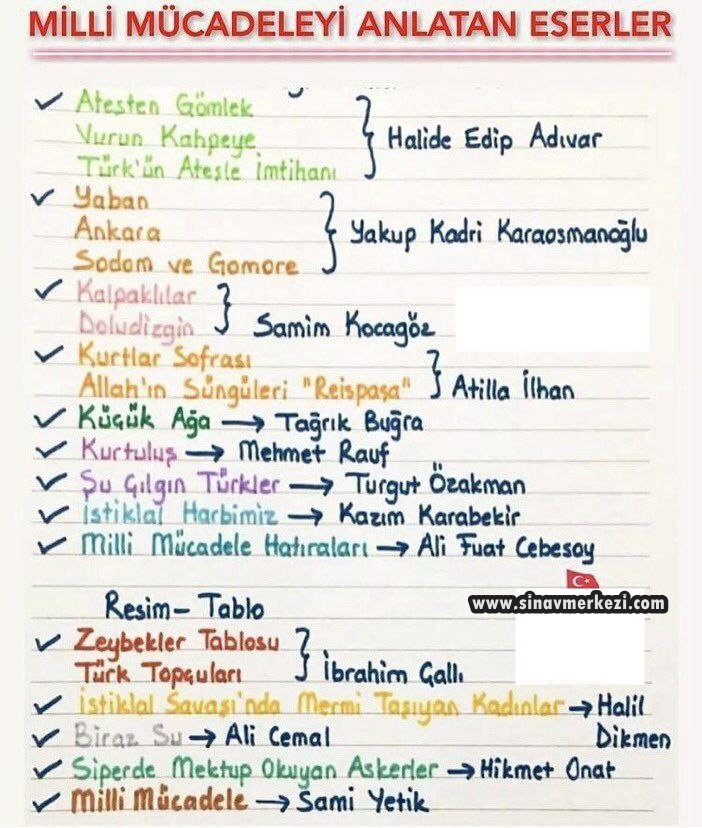 MİLLİ MÜCADELEYİ ANLATAN ESERLER
✓ Ateşten Gömlek
Vurun Kahpeye
Türk'ün Ateşle İmtihanı
Halide Edip Adıvar
✓ Yaban
Ankara
Sodom ve Gomore
Yakup Kadri Karaosmanoğlu
✓ Kalpaklılar
Doludizgin
Samim Kocagöz
✓ Kurtlar Sofrası
Allah'ın Süngüleri "Reispaşa"
Atilla İlhan
✓ Küçük Ağa → Tağrık Buğra
✓ Kurtuluş → Mehmet Rauf
✓ Şu Çılgın Türkler → Turgut Özakman
✓ İstiklal Harbimiz → Kazım Karabekir
✓ Milli Mücadele Hatıraları → Ali Fuat Cebesoy
www.sinavmerkezi.com
Resim - Tablo
✓ Zeybekler Tablosu
Türk Topçuları
İbrahim Çallı
✓ İstiklal Savaşı'nda Mermi Taşıyan Kadınlar → Halil
Dikmen
✓ Biraz Su → Ali Cemal
✓ Siperde Mektup Okuyan Askerler → Hikmet Onat
✓ Milli Mücadele → Sami Yetik